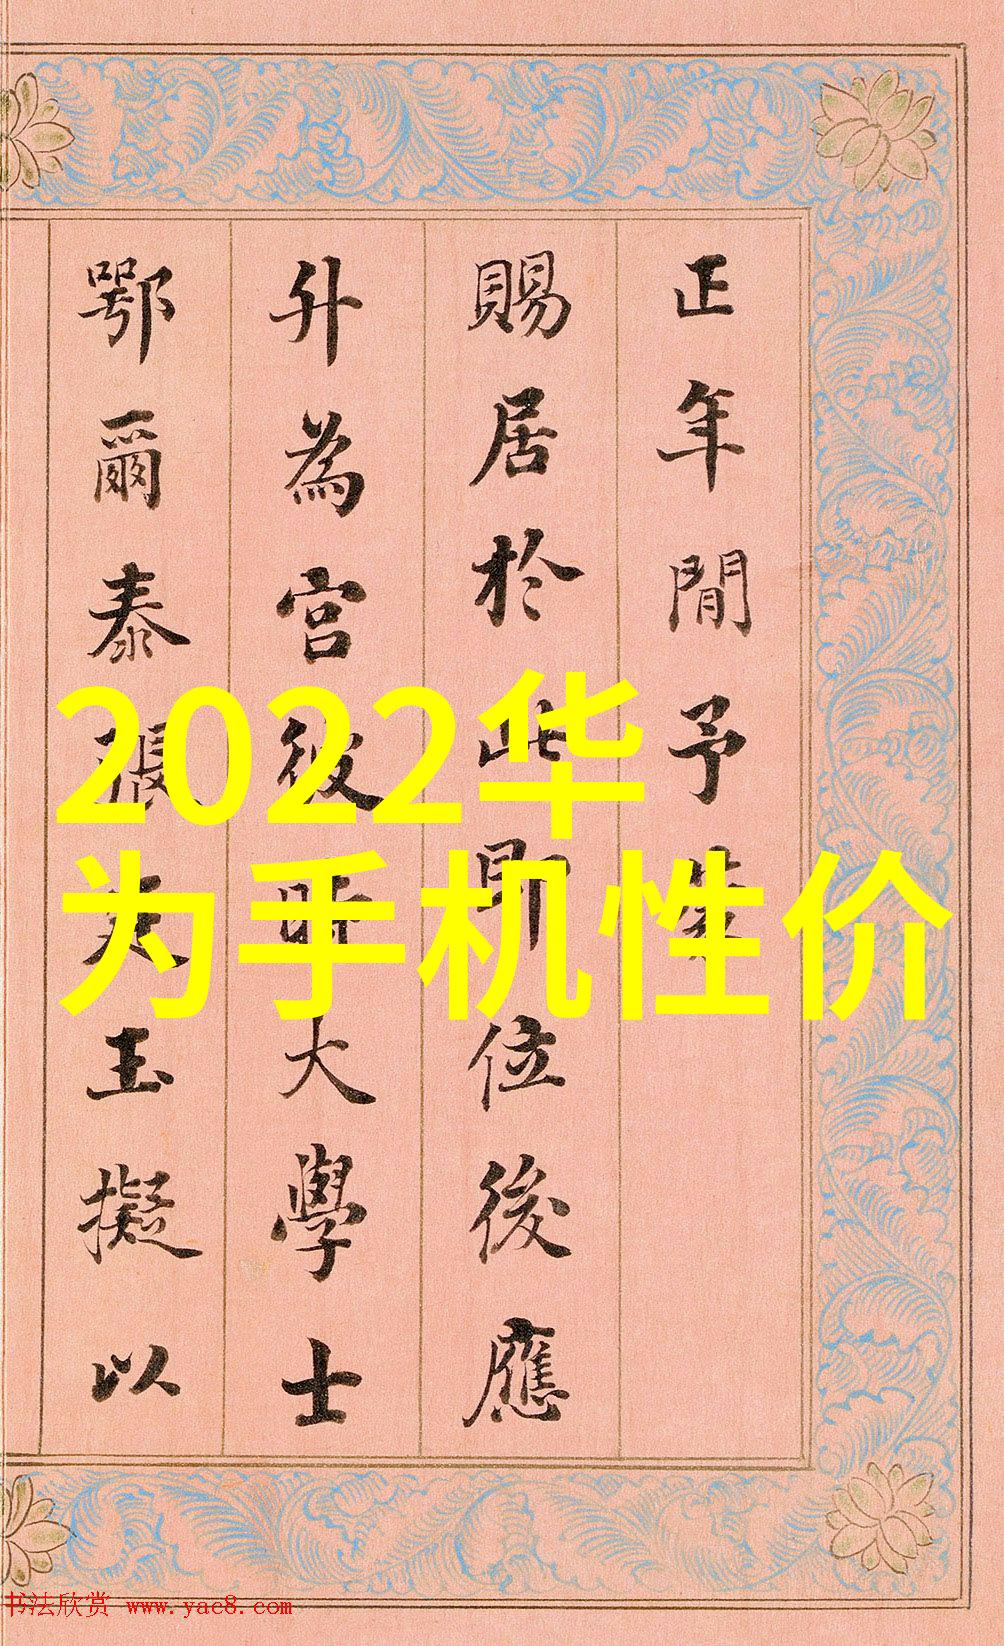 正年間予先
賜居於此即位後應
升為宮彼時大學士
鄂爾泰張廷玉擬以
2022华
为手机性价
书法欣赏 www.yac8.com